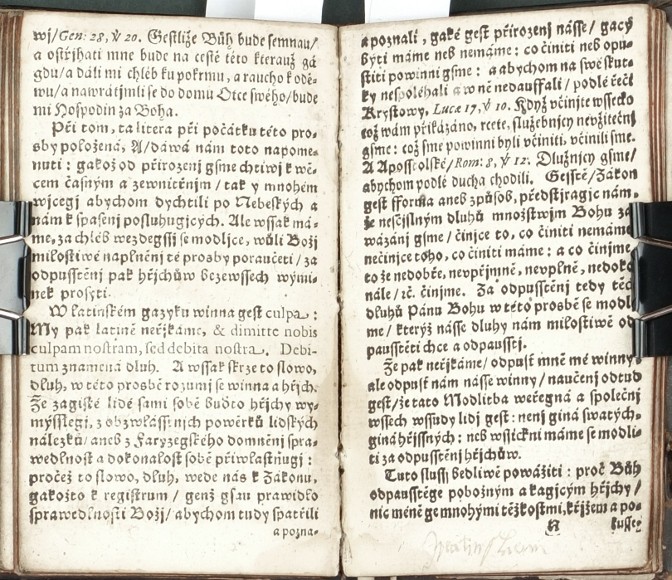 wj/ Gen: 28, ℣ 20. Gestliže Bůh bude semnau/
a ostřjhati mne bude na cestě této kterauž gá
gdu/ a dáli mi chléb ku pokrmu, a raucho k odě-
wu/ a nawrátjmli se do domu Otce swého/ bude
mi Hospodin za Boha.
Při tom, ta litera při počátku této pro-
sby položená, A/ dáwá nám toto napome-
nutí: gakož od přirozenj gsme chtiwj k wě-
cem časným a zewnitěnjm/ tak y mnohém
wjcegi abychom dychtili po Nebeských a
nám k spasenj posluhugjcých. Ale wssak má-
me, za chléb wezdegssj se modljce, wůli Božj
milostiwé naplněnj té prosby poraučeti/ za
odpusstěnj pak hřjchůw bezewssech wými-
nek prosyti.
W latinském gazyku winna gest culpa:
My pak latině neřjkáme, & dimitte nobis
culpam nostram, sed debita nostra. Debi-
tum znamená dluh. A wssak skrze to slowo,
dluh, w této prosbě rozumj se winna a hřjch.
Že zagisté lidé sami sobě buďto hřjchy wy-
mýsslegj, z obzwlásstnjch powěrků lidských
nálezků/ aneb z Faryzegského domněnj spra-
wedlnost a dokonalost sobě přiwlastňugj:
pročež to slowo, dluh, wede nás k Zákonu,
gakožto k registrum/ genž gsau prawidlo
sprawedlnosti Božj/ abychom tudy spatřili
a pozna-
a poznali, gaké gest přirozenj násse/ gacý
býti máme neb nemáme: co činiti neb opu-
stiti powinni gsme: a abychom na swé skut-
ky nespoléhali a w ně nedauffali/ podlé řeči
Krystowy, Lucæ 17, ℣ 10. Když včinjte wssecko
což wám přikázáno, rcete, služebnjcy neužitečnj
gsme: což sme powinni byli včiniti, včinili sme.
A Aposstolské/ Rom: 8, ℣ 12. Dlužnjcy gsme/
abychom podlé ducha chodili. Gesstě/ Zákon
gest fforma aneb způsob, předstjragjc nám,
že nesčjslným dluhů množstwjm Bohu za-
wázáni gsme/ činjce to, co činiti nemáme
nečinjce toho, co činiti máme: a co činjme
to že nedobře, neupřjmně, neuplně, nedoko-
nále/ ꝛc. činjme. Za odpusstěnj tedy těch
dluhů Pánu Bohu w této prosbě se modlj-
me/ kterýž násse dluhy nám milostiwě od-
pausstěti chce a odpausstj.
Že pak neřjkáme/ odpusť mně mé winny
ale odpusť nám násse winny/ naučenj odtud
gest/ že tato Modlitba weřegná a společnj
wssech wssudy lidj gest: nenj giná swatých,
giná hřjssných: neb wssickni máme se modli-
ti za odpusstěnj hřjchůw.
Tuto slussj bedliwě powážiti: proč Bůh
odpausstěge pobožným a kagjcým hřjchy/
nic méně ge mnohými těžkostmi, křjžem a po-
kussey